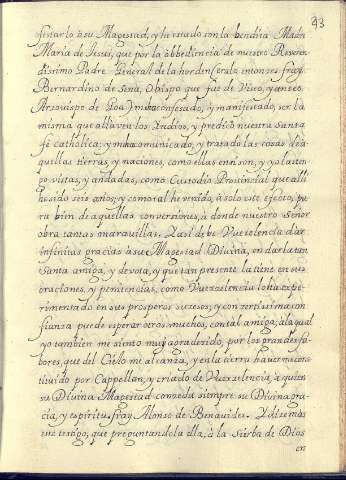 93
festarlo à su Magestad, y he estado con la bendita Madre
Maria de Jesus, que por la obbediencia de nuestro Reveren-
dissimo Padre General de la horden (siendo entonces fray
Bernardino de Sena, Obispo que fue de Viseo, y aneco
Arzobispo de Goa) me ha confesado, y manifestado, ser la
misma que allà ven los Indios, y predicò nuestra Santa
fe catholica; y me ha comunicado, y tratado las cosas de a-
quellas tierras, y naciones, como ellas en si son, y yo la tien-
go vistas, y andadas, como Custodio Provincial que allà
he sido seis años; y como tal he venido, à solo este efecto, pa-
ra bien de aquellas conversiones, à donde nuestro Señor
obra tantas maravillas. Y asi debe Vuexcelencia dar
infinitas gracias à su Magestad Divina, en darla tan
Santa amiga, y devota, y que tan presente la tiene en sus
oraciones, y penitencias, como Vuexcelencia lo ha expe-
rimentado en sus prosperos sucesos; y con certissima con
fianza puede esperar otros muchos, con tal amiga; à la qual
yo tambien me siento muy agradecido, por los grandes fa-
bores, que del Cielo me alcanza, y en la tierra haverme cons-
tituido por Cappellan, y criado de Vuexcelencia, à quien
su Divina Magestad conceda siempre su Divina gra-
cia, y espiritu. fray Alonso de Benavides. Y dize mas
este testigo, que preguntandola illa, à la Sierba de Dios
en